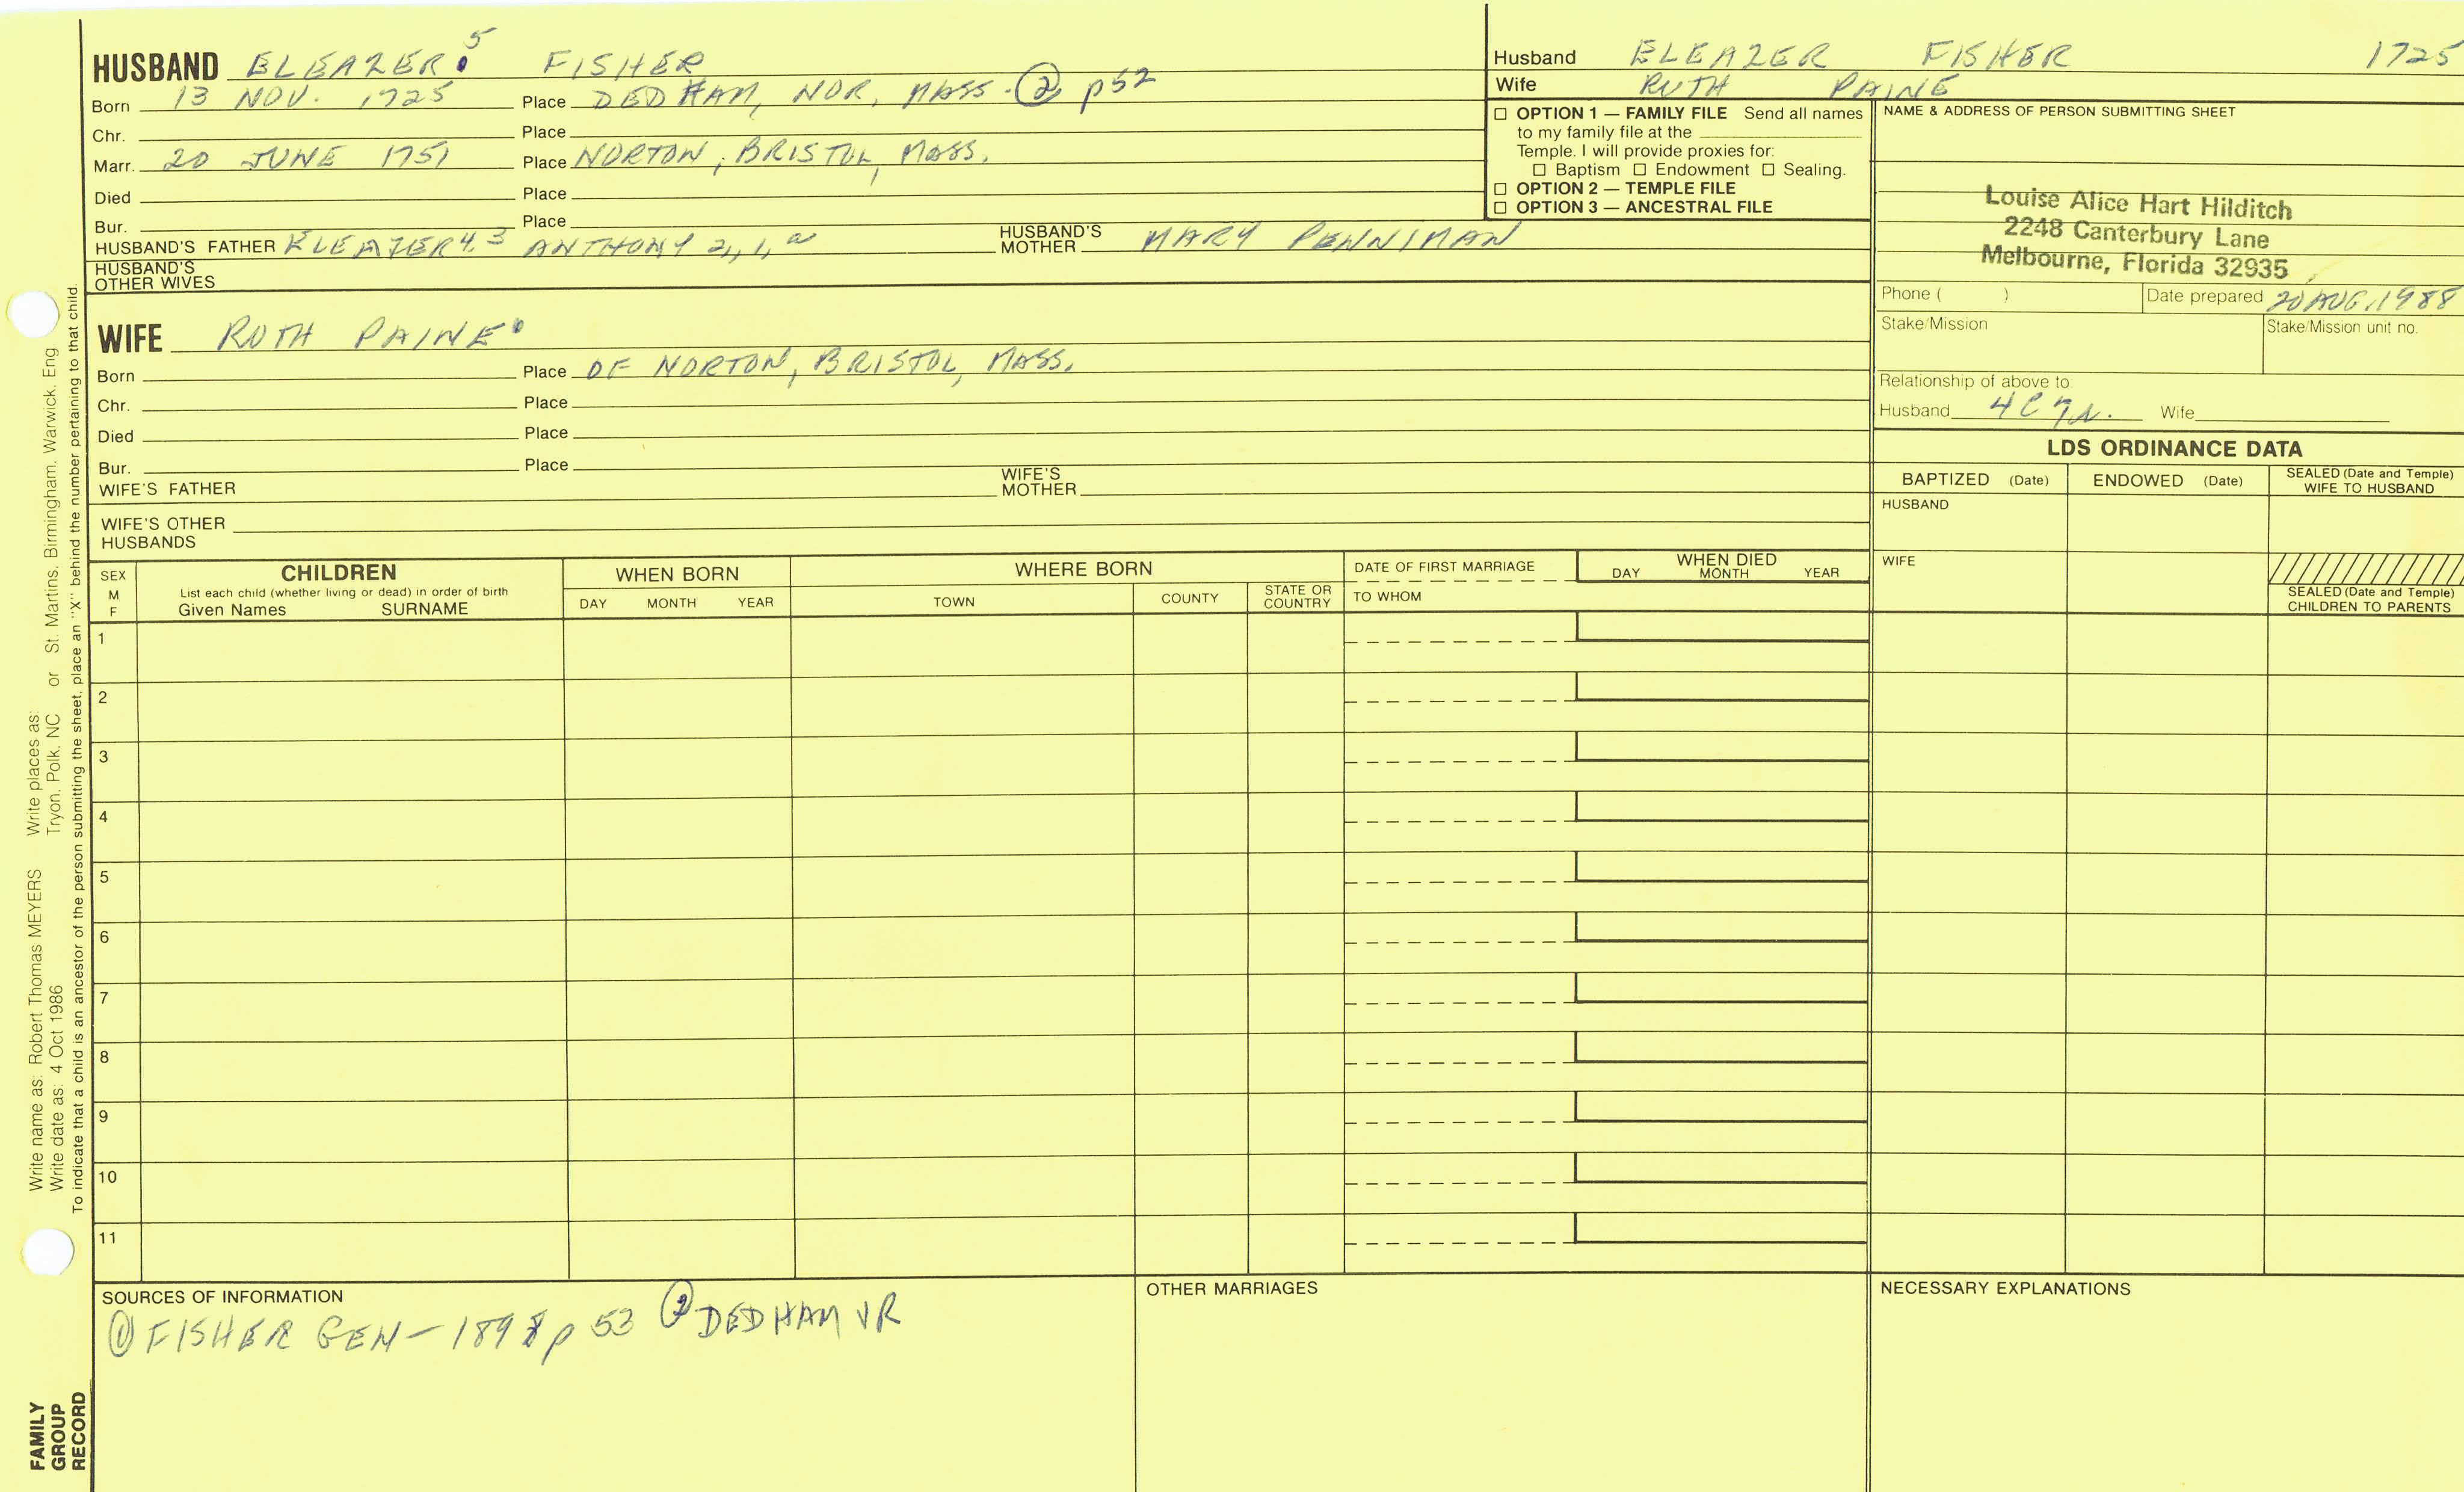 HUSBAND ELEAZER 5 FISHER
Born 13 NOV. 1725 Place DEDHAM, NOR, MASS. ② p52
Chr. Place
Marr. 20 JUNE 1751 Place NORTON, BRISTOL, MASS.
Died Place
Bur. Place
HUSBAND'S FATHER ELEAZER 4, 3 ANTHONY 2, 1, HUSBAND'S MOTHER MARY PENNIMAN
HUSBAND'S OTHER WIVES
WIFE RUTH PAINE
Born Place OF NORTON, BRISTOL, MASS.
Chr. Place
Died Place
Bur. Place
WIFE'S FATHER WIFE'S MOTHER
WIFE'S OTHER HUSBANDS
Husband ELEAZER FISHER 1725
Wife RUTH PAINE
☐ OPTION 1 — FAMILY FILE Send all names
to my family file at the
Temple. I will provide proxies for:
☐ Baptism ☐ Endowment ☐ Sealing.
☐ OPTION 2 — TEMPLE FILE
☐ OPTION 3 — ANCESTRAL FILE
NAME & ADDRESS OF PERSON SUBMITTING SHEET
Louise Alice Hart Hilditch
2248 Canterbury Lane
Melbourne, Florida 32935
Phone ( ) Date prepared 20 AUG, 1988
Stake/Mission Stake/Mission unit no.
Relationship of above to:
Husband 4C7R. Wife
LDS ORDINANCE DATA
BAPTIZED (Date) ENDOWED (Date) SEALED (Date and Temple) WIFE TO HUSBAND
HUSBAND
WIFE
SEALED (Date and Temple)
CHILDREN TO PARENTS
SEX M F
CHILDREN
List each child (whether living or dead) in order of birth
Given Names SURNAME
WHEN BORN
DAY MONTH YEAR
WHERE BORN
TOWN COUNTY STATE OR COUNTRY
DATE OF FIRST MARRIAGE
TO WHOM
WHEN DIED
DAY MONTH YEAR
1
2
3
4
5
6
7
8
9
10
11
SOURCES OF INFORMATION
① FISHER GEN — 1898 p 53 ② DEDHAM VR
OTHER MARRIAGES
NECESSARY EXPLANATIONS
Write name as: Robert Thomas MEYERS Write places as:
Write date as: 4 Oct 1986 Tryon, Polk, NC or St. Martins, Birmingham, Warwick, Eng
To indicate that a child is an ancestor of the person submitting the sheet, place an "X" behind the number pertaining to that child.
FAMILY
GROUP
RECORD